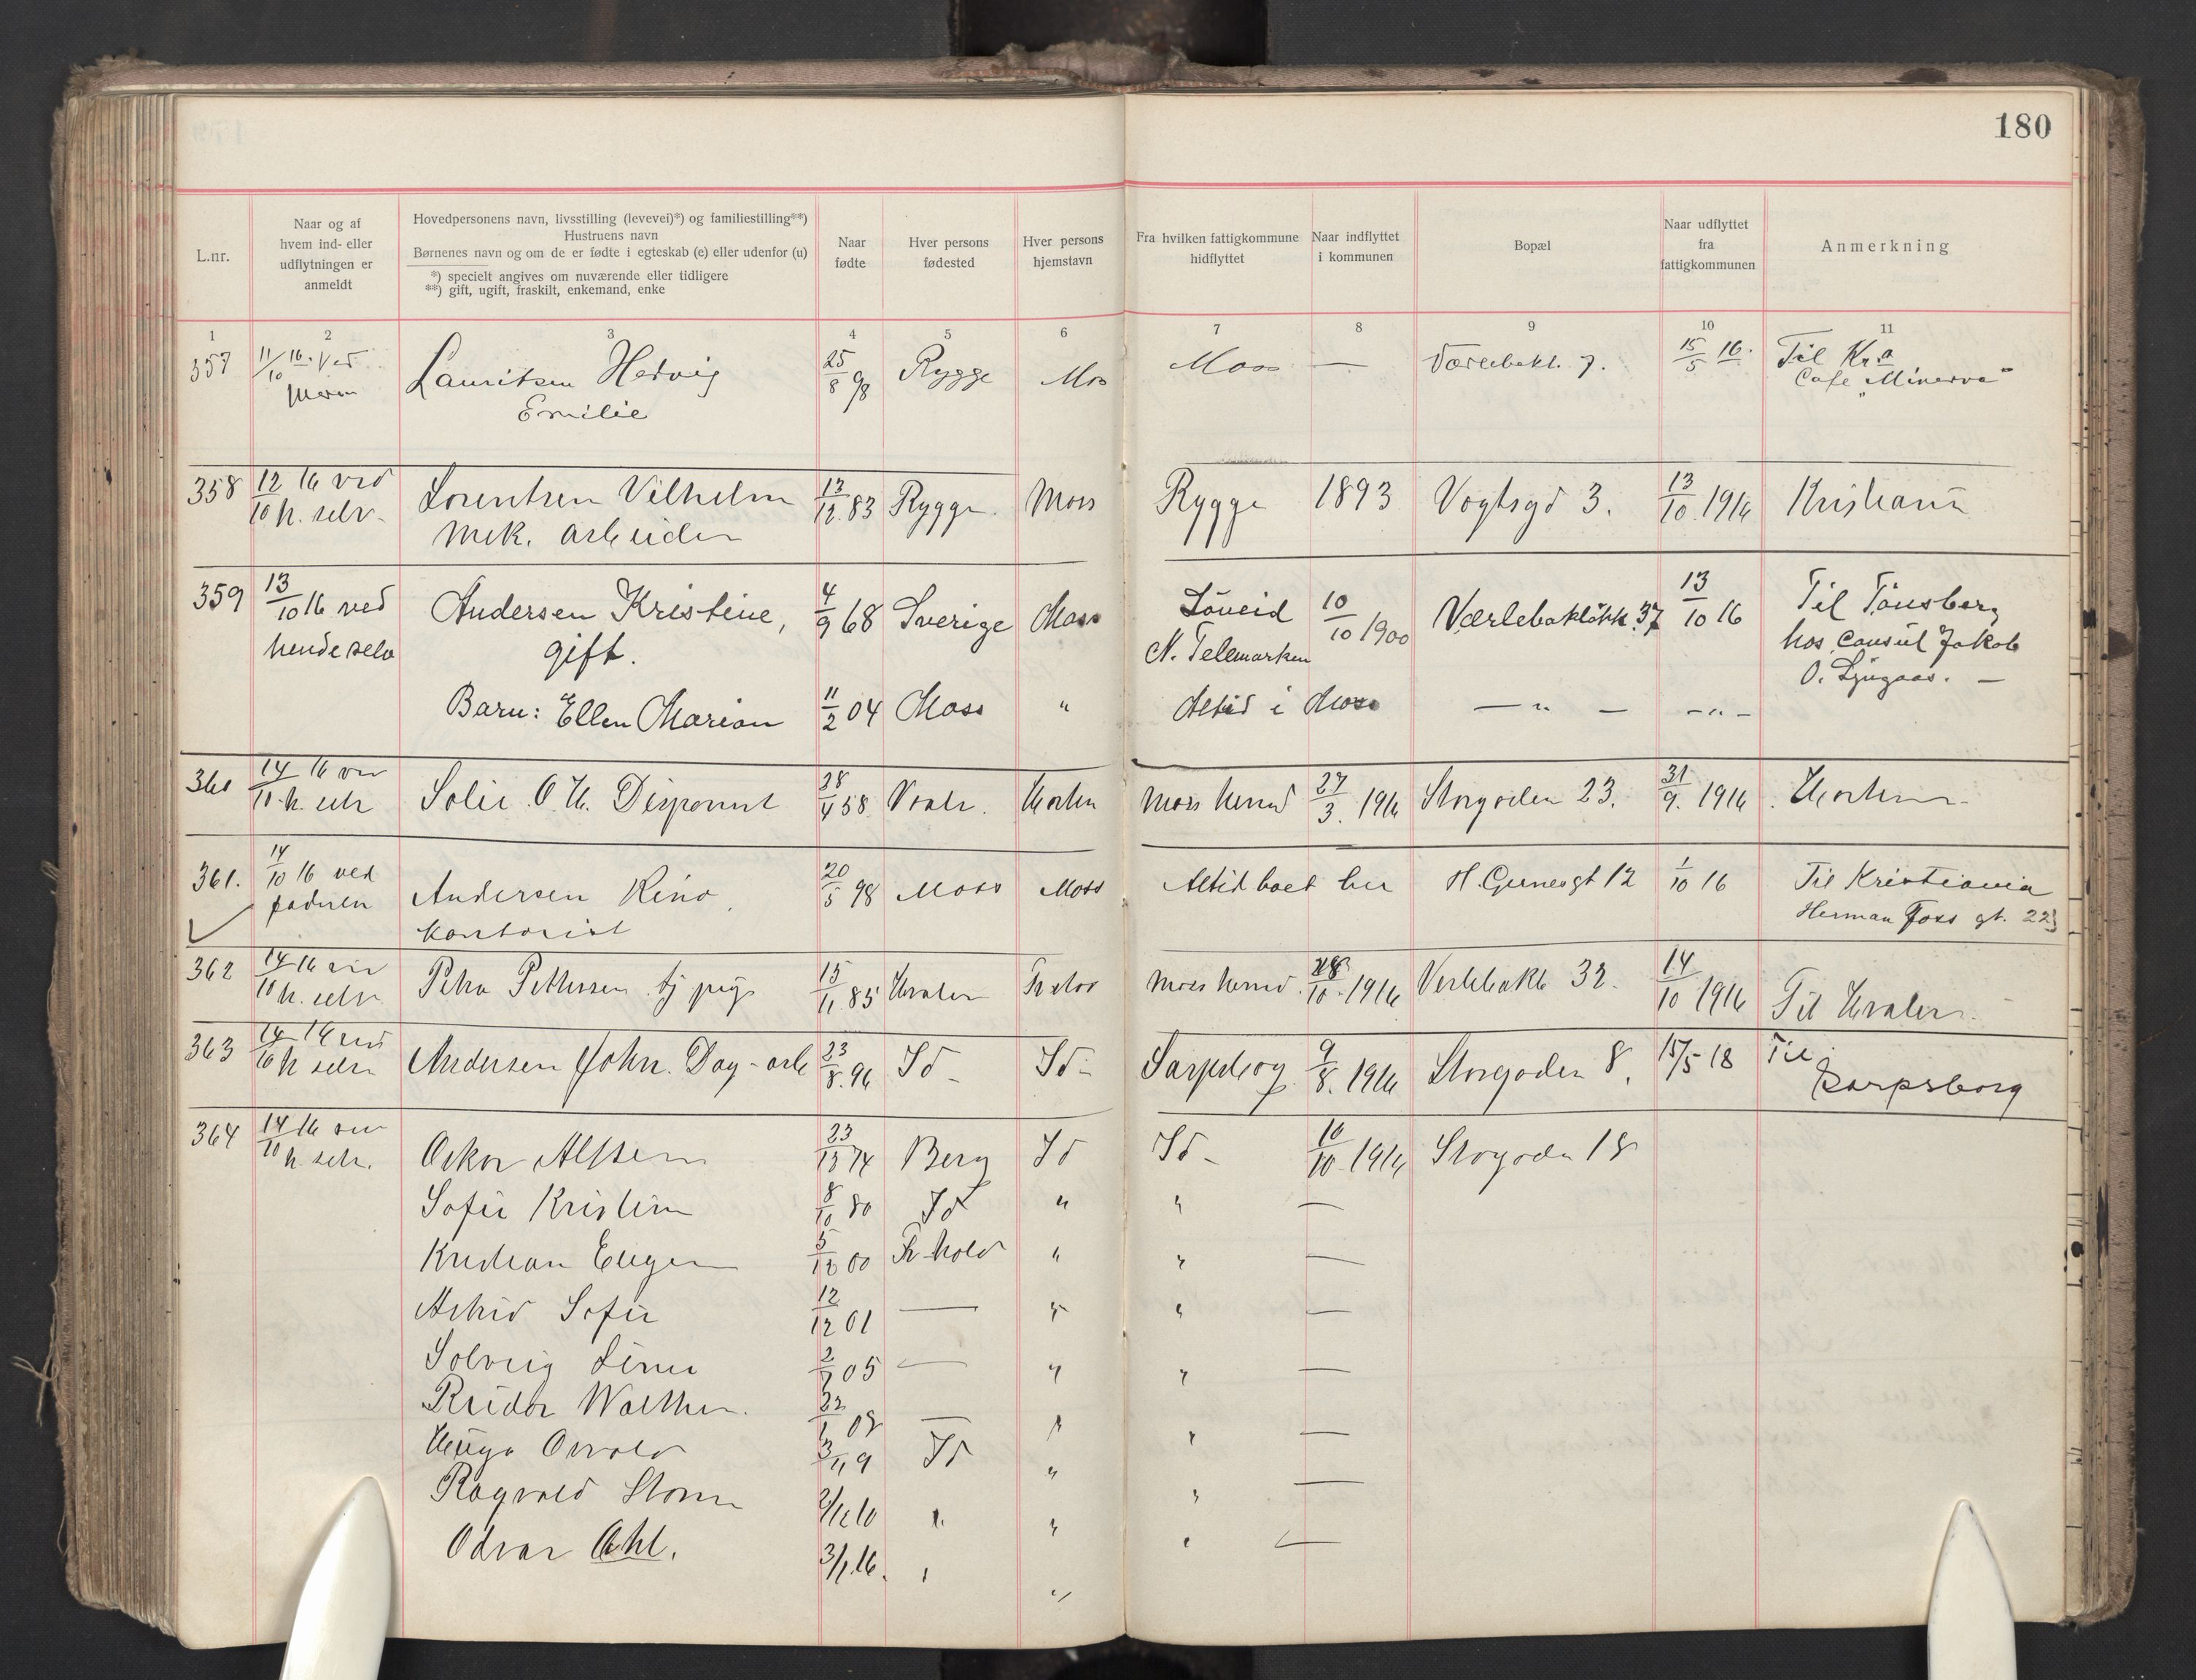 180
L.nr.
Naar og af
hvem ind- eller
udflytningen er
anmeldt
Hovedpersonens navn, livsstilling (levevei)*) og familiestilling**)
Hustruens navn
Børnenes navn og om de er fødte i egteskab (e) eller udenfor (u)
*) specielt angives om nuværende eller tidligere
**) gift, ugift, fraskilt, enkemand, enke
Naar
fødte
Hver persons
fødested
Hver persons
hjemstavn
Fra hvilken fattigkommune
hidflyttet
Naar indflyttet
i kommunen
Bopæl
Naar udflyttet
fra
fattigkommunen
Anmerkning
1 2 3 4 5 6 7 8 9 10 11
357 11/10 16. Ved Lauritsen Hedvig 25/8 98 Rygge Mos Moss — 7. 15/5 16. Til Kr.a
Emilie Cafe „Minerva"
358 12/10 16 ved Lorentsen Vilhelm 13/12 83 Rygge Moss Rygge 1893 Vogtsgd 3. 13/10 1916 Kristiania
h. selv. mek. arbeider
359 13/10 16 ved Andersen Kristine, 4/9 68 Sverige Moss 10/10 1900 37 13/10 16 Til Tönsberg
hende selv gift. N. Telemarken hos Consul Jakob
O.
Barn: Ellen Marion 11/2 04 Moss " Altid i Moss — " — - " -
360 14/10 16 ved Solie O. 28/4 58 Horten Moss 27/3. 1916 Storgaden 23. 31/9. 1916 Horten
h. selv
361. 14/10 16 ved Andersen 20/5 98 Moss Moss Altid boet her H. Gernesgt 12 1/10 16 Til Kristiania
faderen Kontorist Herman Foss gt. 22
362 14/10 16 ved Petra Pettersen tj pige 15/11 85 Moss 1916 32. 14/10 1916 Til
h. selv
363 14/10 16 ved Andersen John. Dag-arb 23/8. 96 Id - Id - Sarpsborg 9/8. 1916 Storgaden 8. 15/5 18 Til
h selv Sarpsborg
364 14/10 16 ved Oskar 23/12 74 Berg Id Id - 10/10 1916 Storgaden 18
h. selv.
Sofie Kristine 8/10 80 Id " " —
Kristian Eugen 5/12 00 Fr.hald " " —
Astrid Sofie 12/12 01 — " " —
Solveig 05 — " " —
Reidar Walther. — " " —
Hugo Osvald Id " " —
Ragvald Storm " " " —
Odvar 3/1 16. " " " —